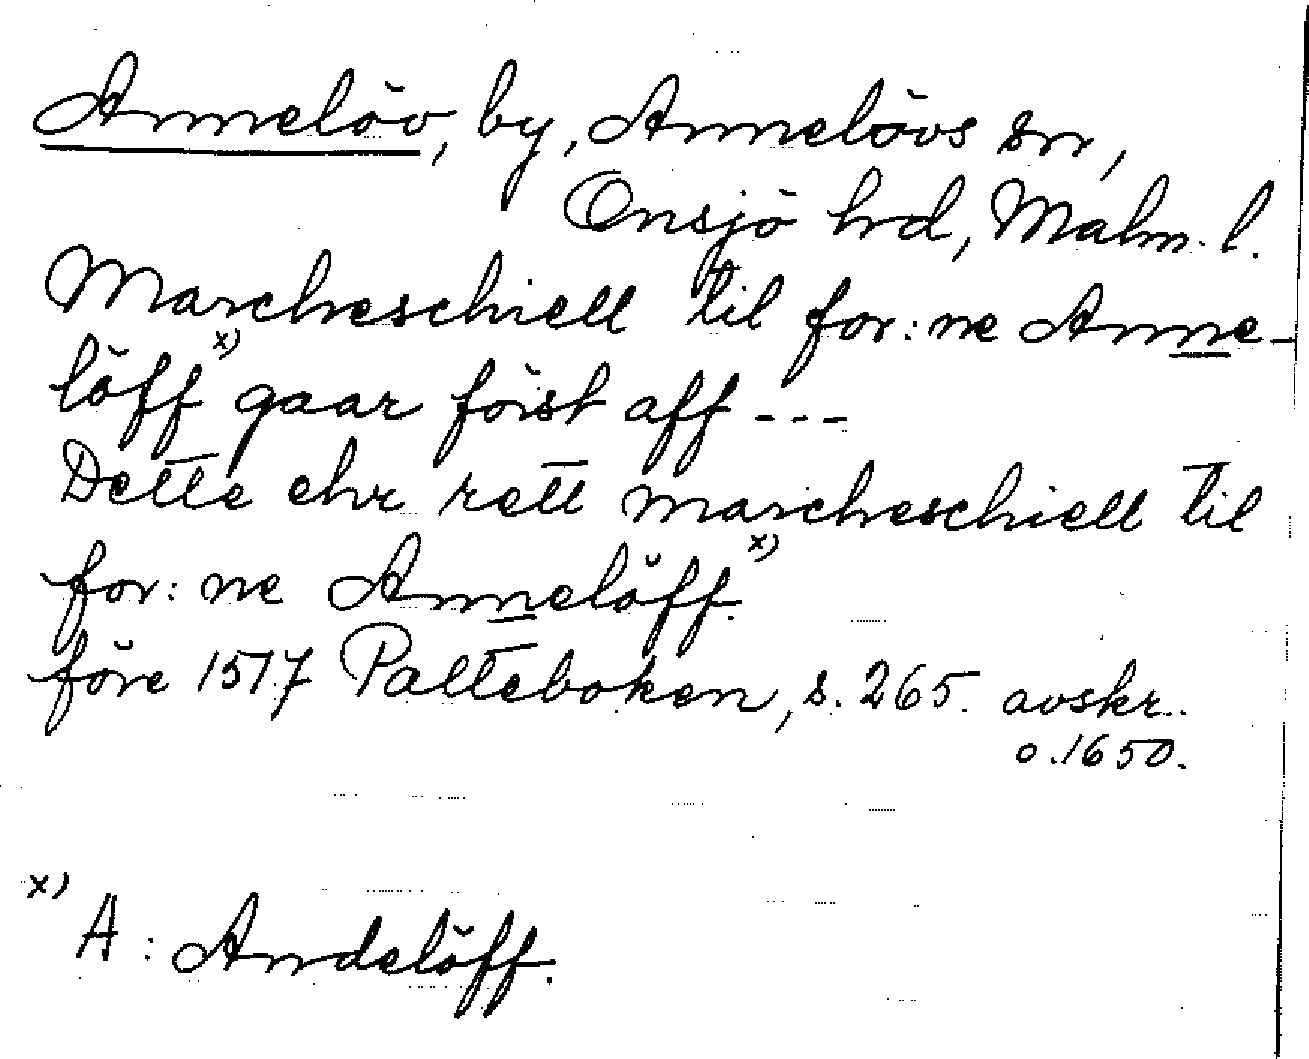 Annelöv, by, Annelövs sn,
Onsjö hd, Malm. l.
Marcheschiell til for: ne Anne-
löff x) gaar föist aff ---
Dette ehr rett marcheschiell til
for: ne Annelöff. x)
före 1517 Palteboken, s. 265. avskr.
o. 1650.
x) A: Andelöff.